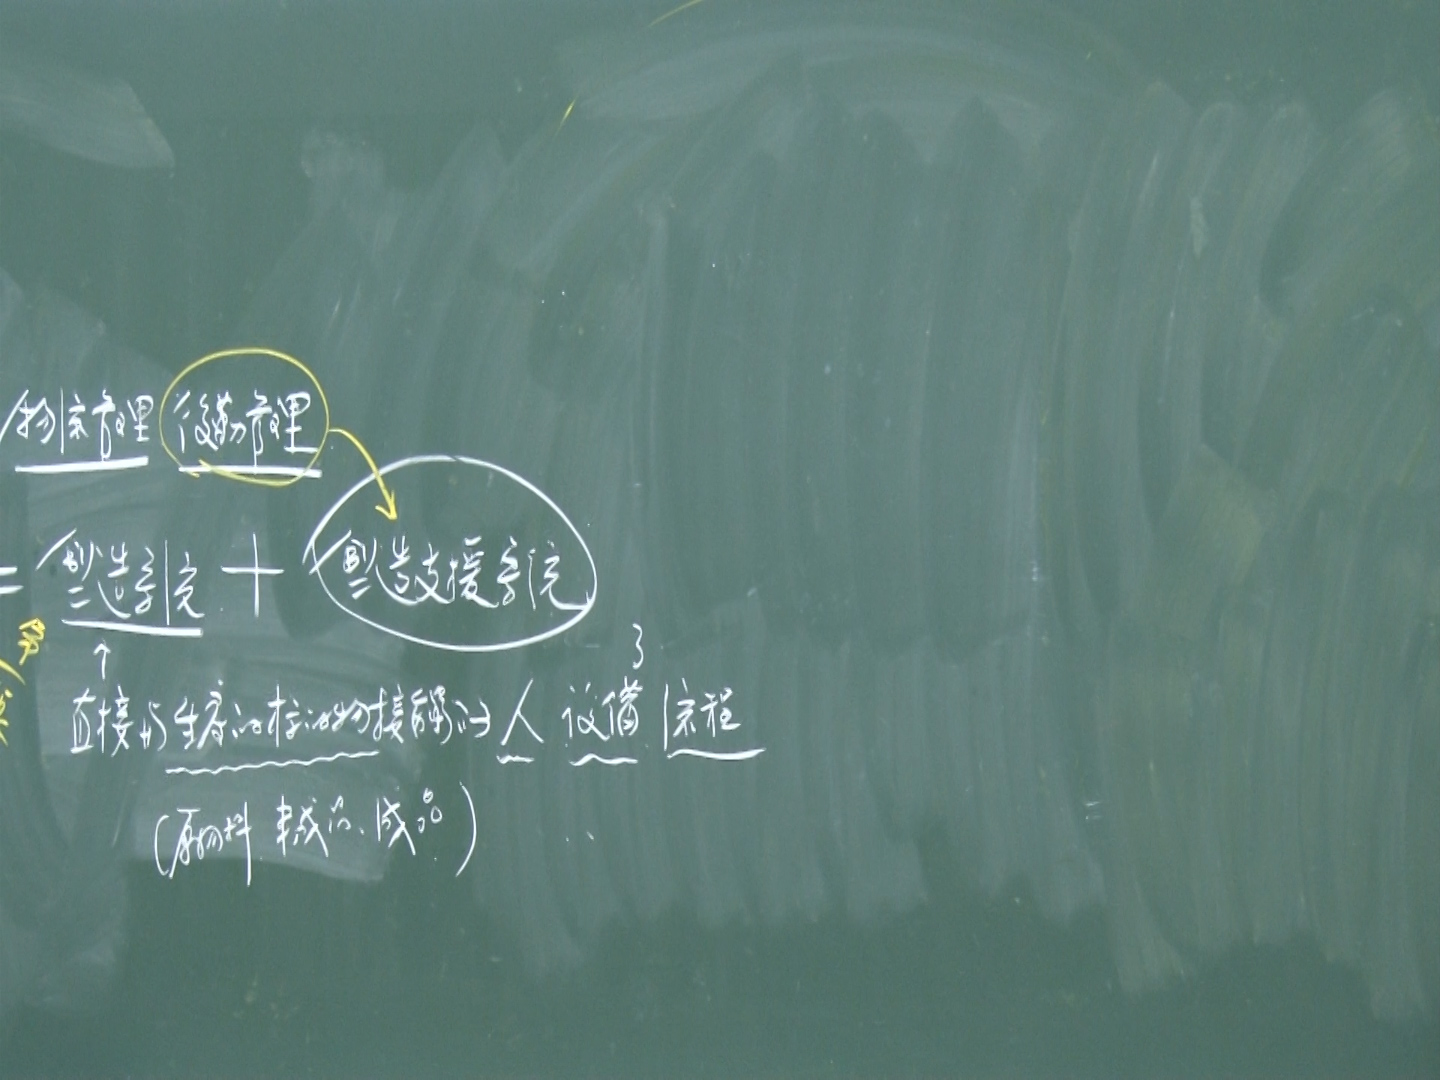 物流管理 後勤管理
= 製造系統 + 製造支援系統
↑
直接與生產的標的物接觸的人 設備 流程
(原物料 半成品、成品)